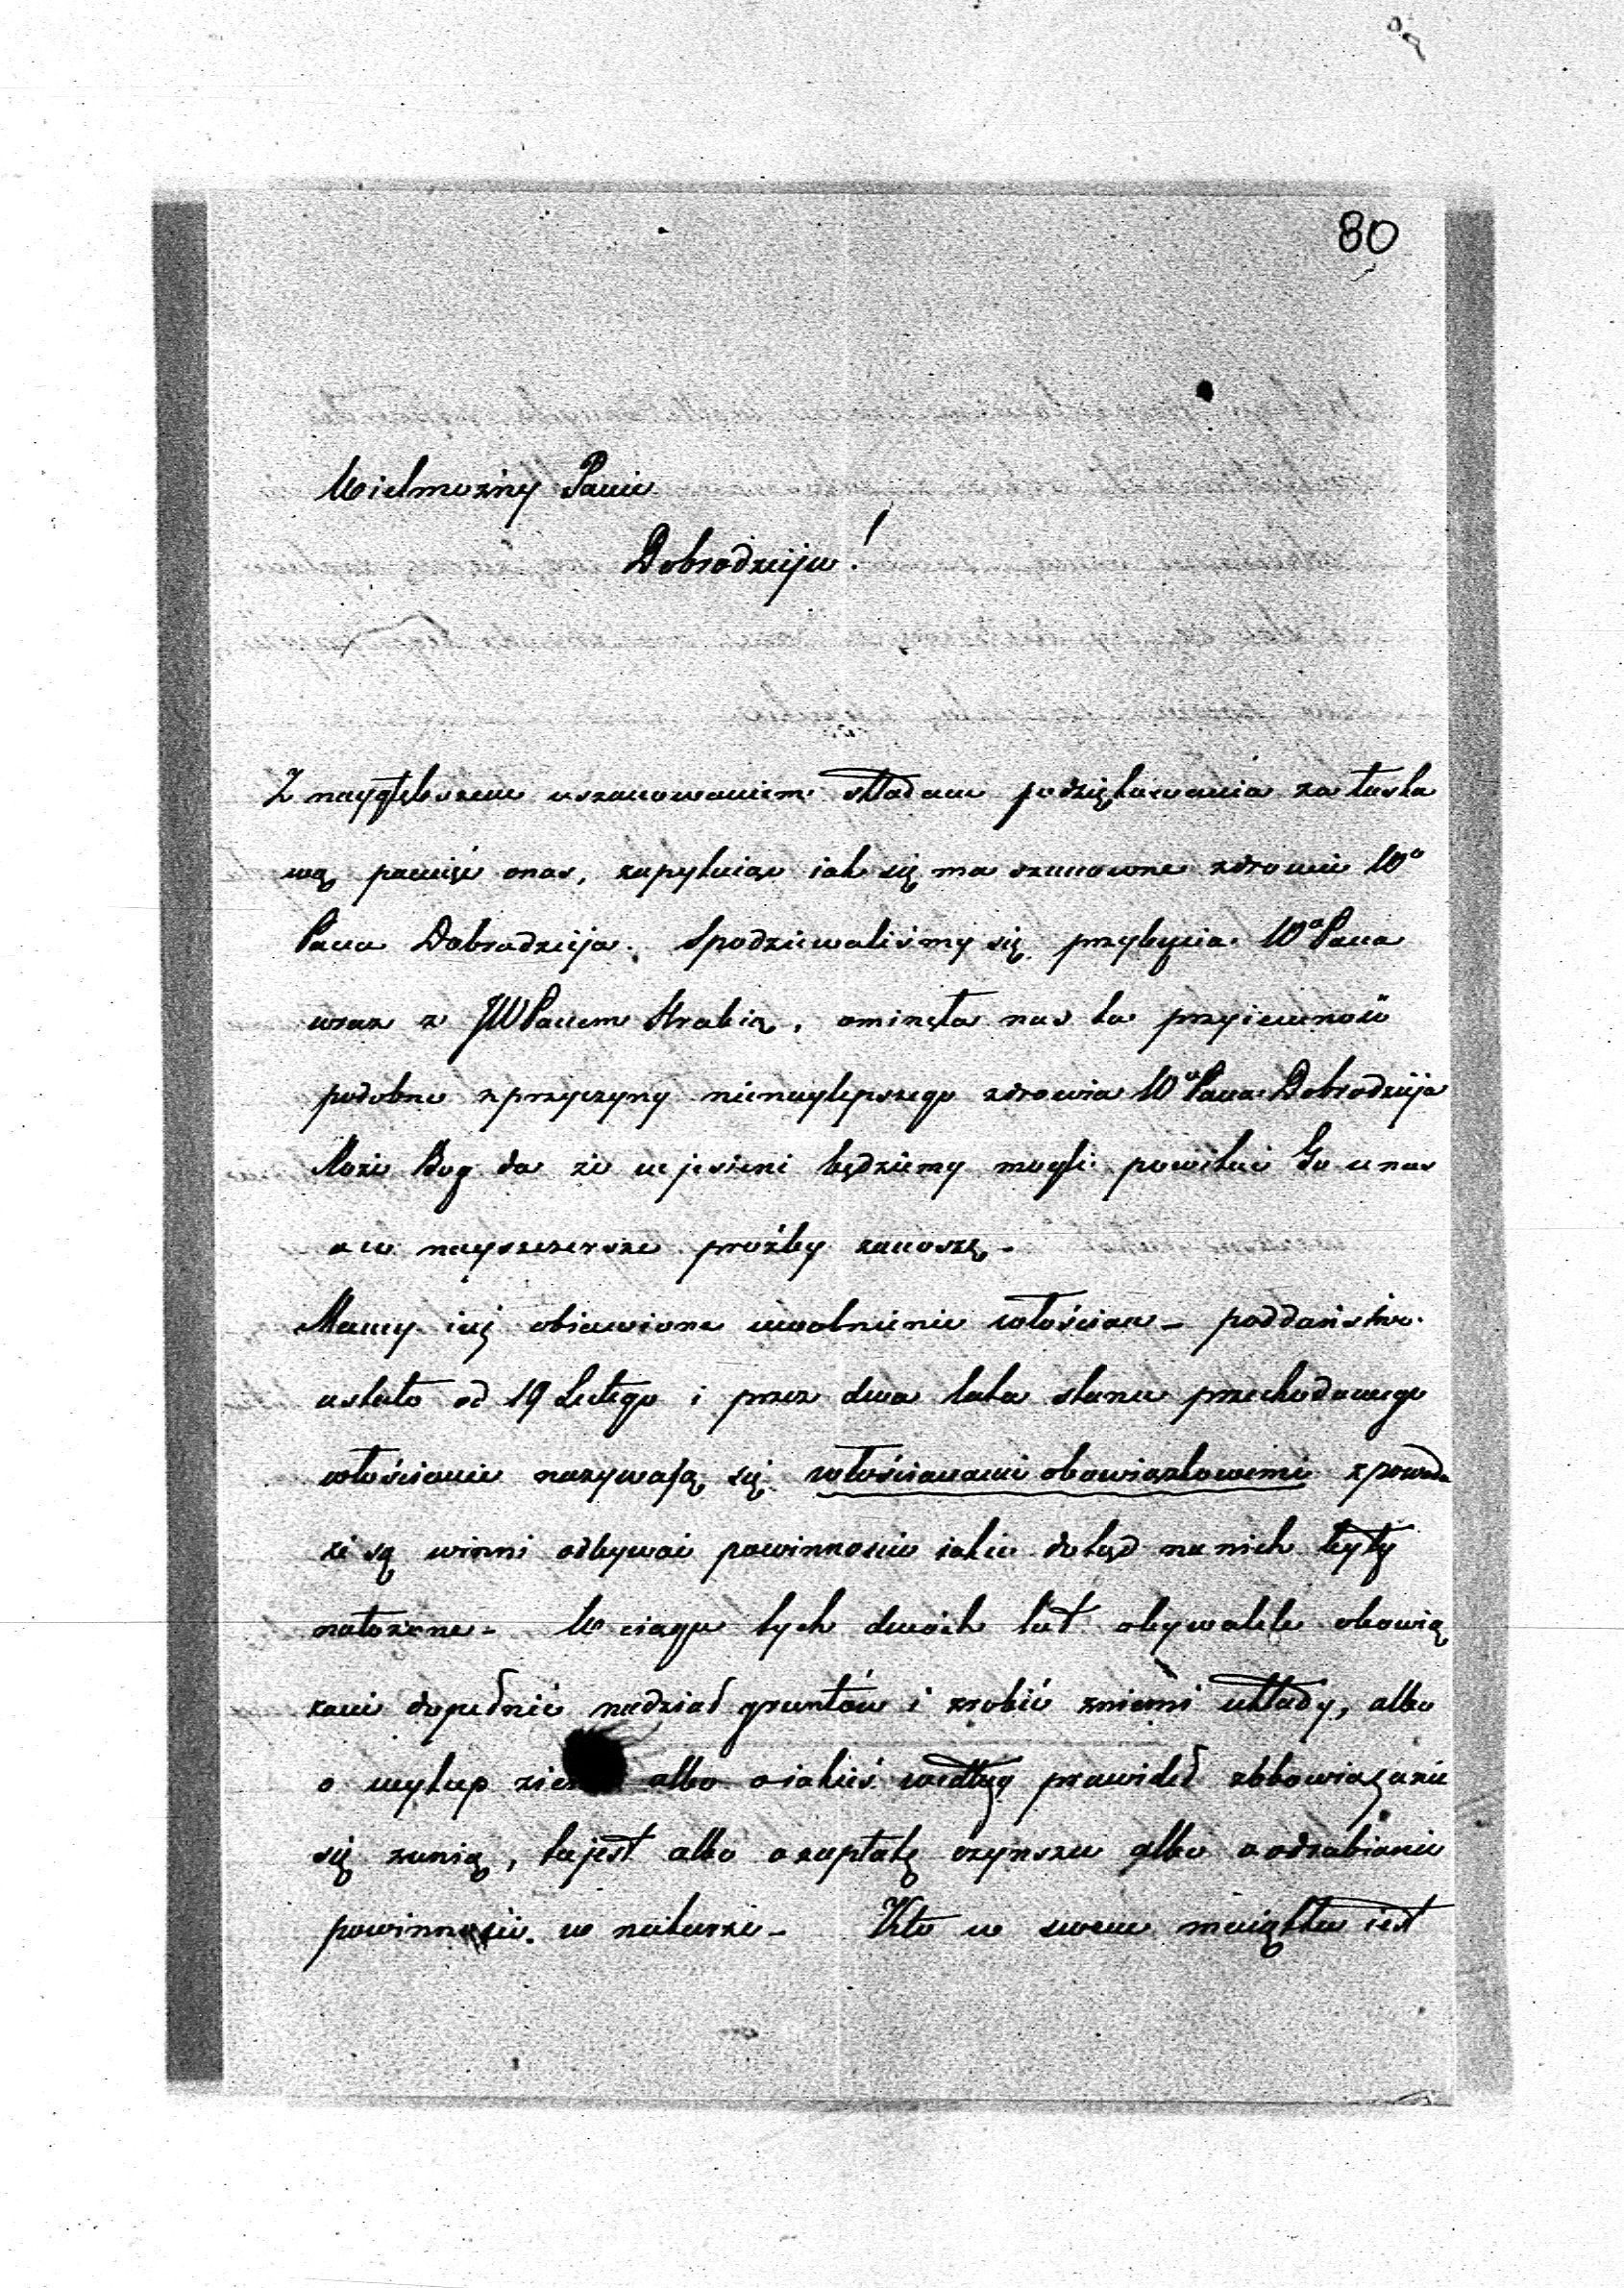 80
Wielmożny Panie
Dobrodzieju!
Z naygłębszem uszanowaniem składam podziękowania za łaska
wą pamięć onas, zapytuiąc iak się ma szanowne zdrowie Wo
Pana Dobrodzieja. Spodziewaliśmy się przybycia Wo Pana
wraz z JWPanem Hrabią, ominęła nas ta przyiemność
podobno zprzyczyny nienaylepszego zdrowia Wo Pana Dobrodzieja
Może Bog da że w jesieni będziemy mogli powitać Go unas
o co nayszczersze prożby zanoszę -
Mamy iuż obiawione uwolnienie włościan - poddaństwo
ustało od 19 Lutego i przez dwa lata stanu przechodowego
włościanie nazywają się włościanami obowiązkowemi zpowodu
że są winni odbywać powinności iakie dotąd na nich były
nałożone - W ciągu tych dwóch lat obywatele obowią
zani dopełnić nadział gruntów i zrobić zniemi układy, albo
o wykup albo o iakieś według prawideł
się zanią, tojest albo o zapłatę czynszu albo o odrabianie
powinności w naturze - Kto w swem maiątku iest